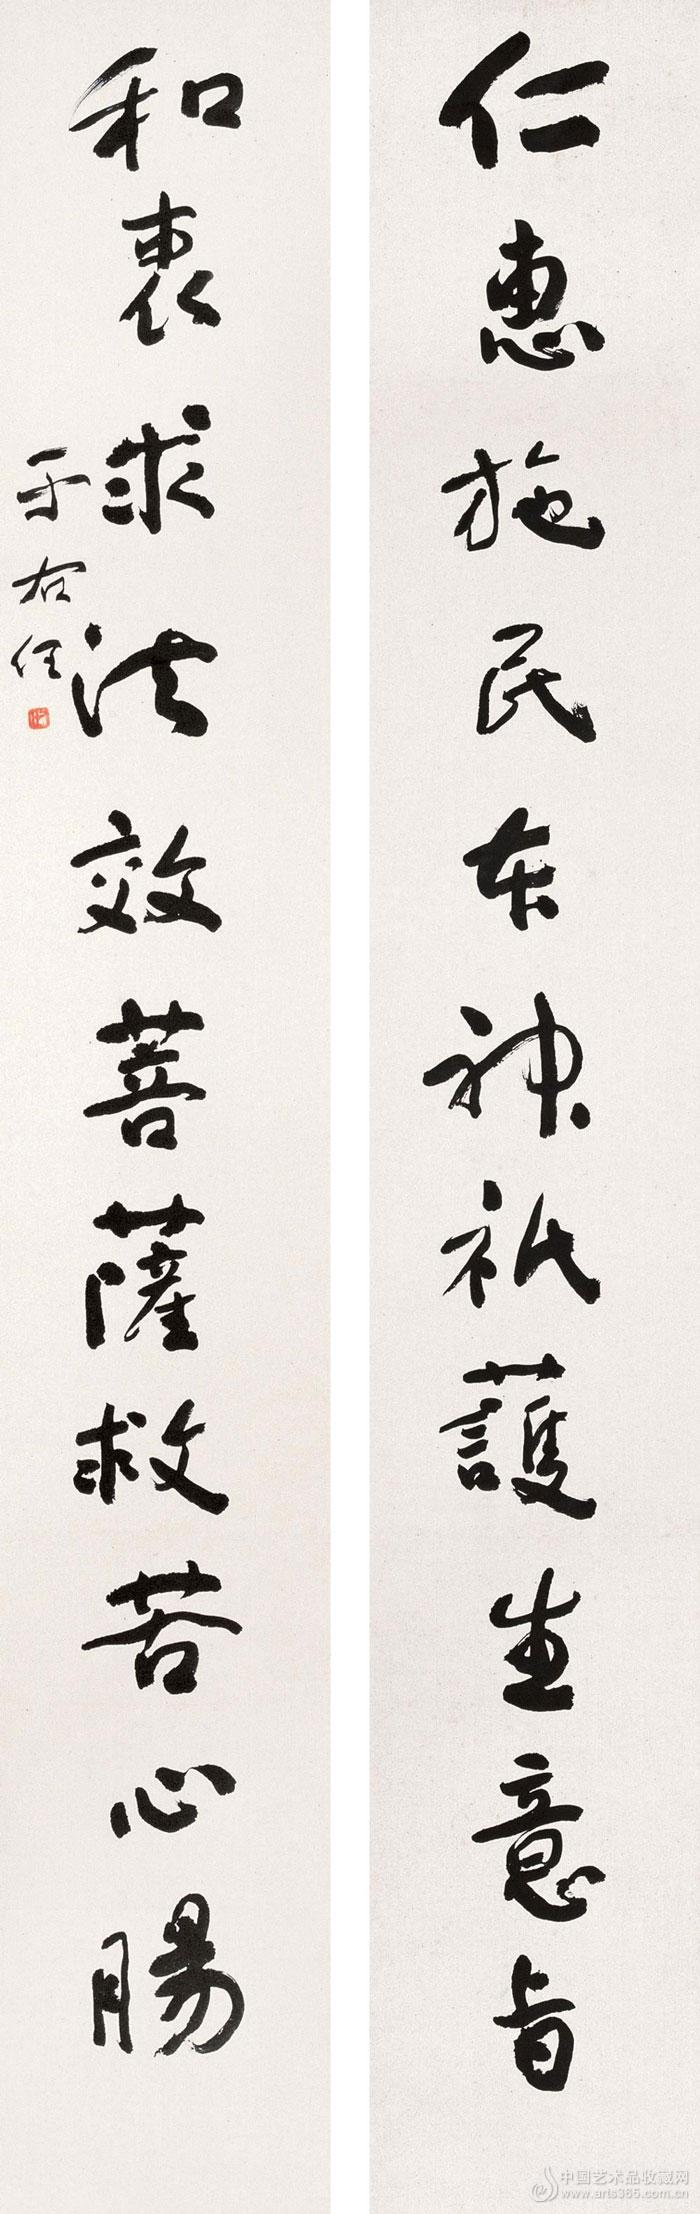 仁惠施民本神祇護生意旨
和衷求法效菩薩救苦心腸
于右任
中国艺术品收藏网
www.arts365.com.cn